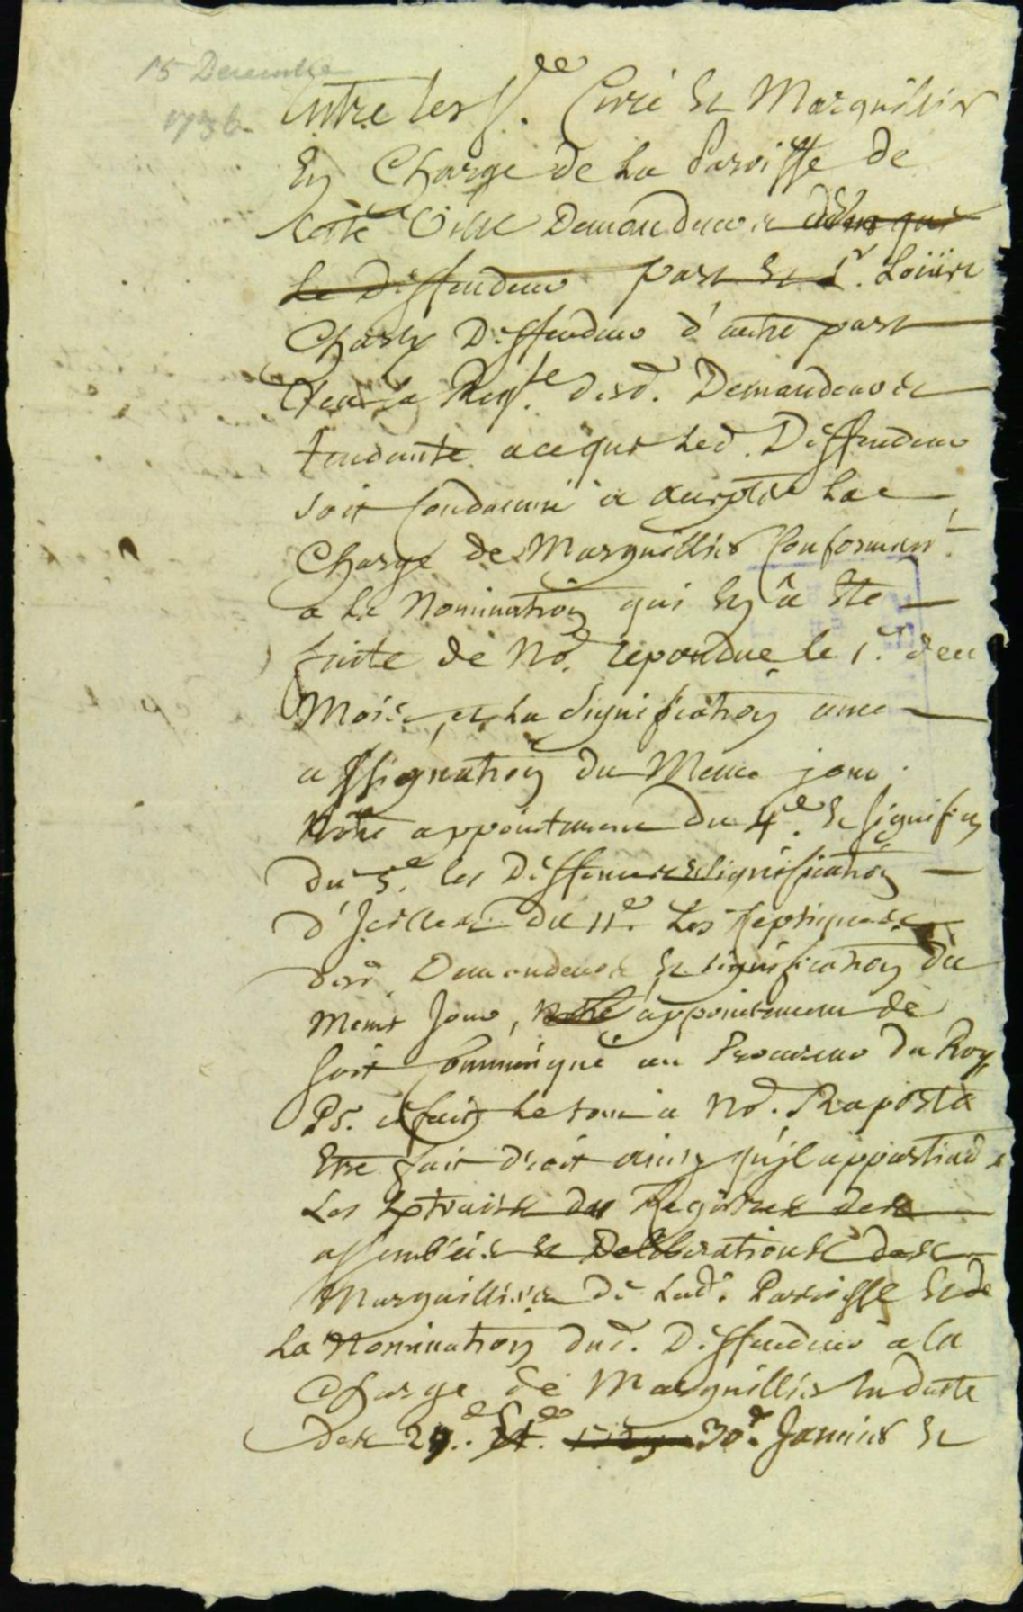 15 Decembre
1736.
Entre les Srs. Curé et Marguilliers
En Charge de La Paroisse de
Cette Ville Demandeurs
Le Deffendeur part Et Sr. Loüis
Charly Deffendeur d'autre part
Veu La Reqte. desd. Demandeurs
tendante a ce que Led. Deffendeur
soit Condamné a accepter La
Charge de Marguillier Conformemt.
a La Nomination qui En â Eté
faite de Nd. repondue le 1er. deu
Mois, et La Signification avec
assignation du Meme jour.
Notre appointement Du 4e. Et Significaon
du 5e. les Deffenses signification
d'Jcelles du 11e. Les Repliques
desd. Demandeurs Et signification du
Meme Jour, Notre appointement de
soit Communiqué au Procureur du Roy
Pr. ce fait Le tout a Nd. Raporté
Etre fait droit ainsy qu'jl appartiendra
Les Extraits des Registres des
assemblées Et Deliberations des
Marguilliers De Lade. Paroisse Et de
La Nomination dud. Deffendeur a la
Charge de Marguillier En datte
des 29e. 30e. Janvier Et